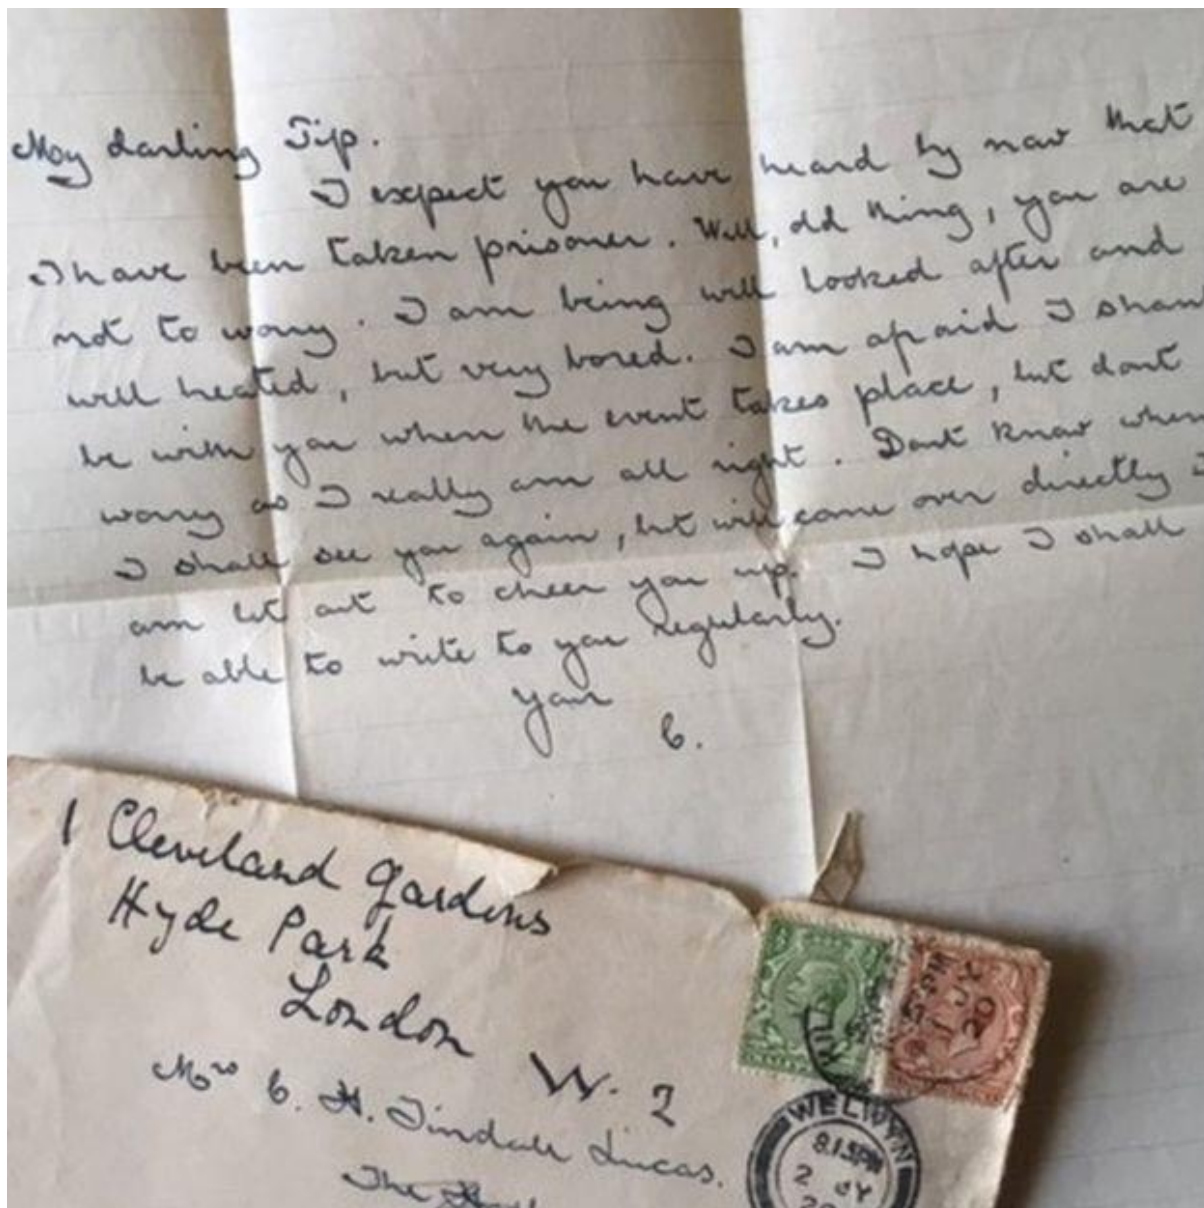 My darling Tip.
I expect you have heard by now that
I have been taken prisoner. Well, old thing, you are
not to worry. I am being well looked after and
well treated, but very bored. I am afraid I shan
be with you when the event takes place, but dont
worry as I really am all right. Dont know when
I shall see you again, but will come over directly I
am let out to cheer you up. I hope I shall
be able to write to you regularly.
Your
C.
1 Cleveland Gardens
Hyde Park
London W. 2
Mrs C. H. Tindall Lucas.
The
WELWYN
8.15PM
2 JY
20